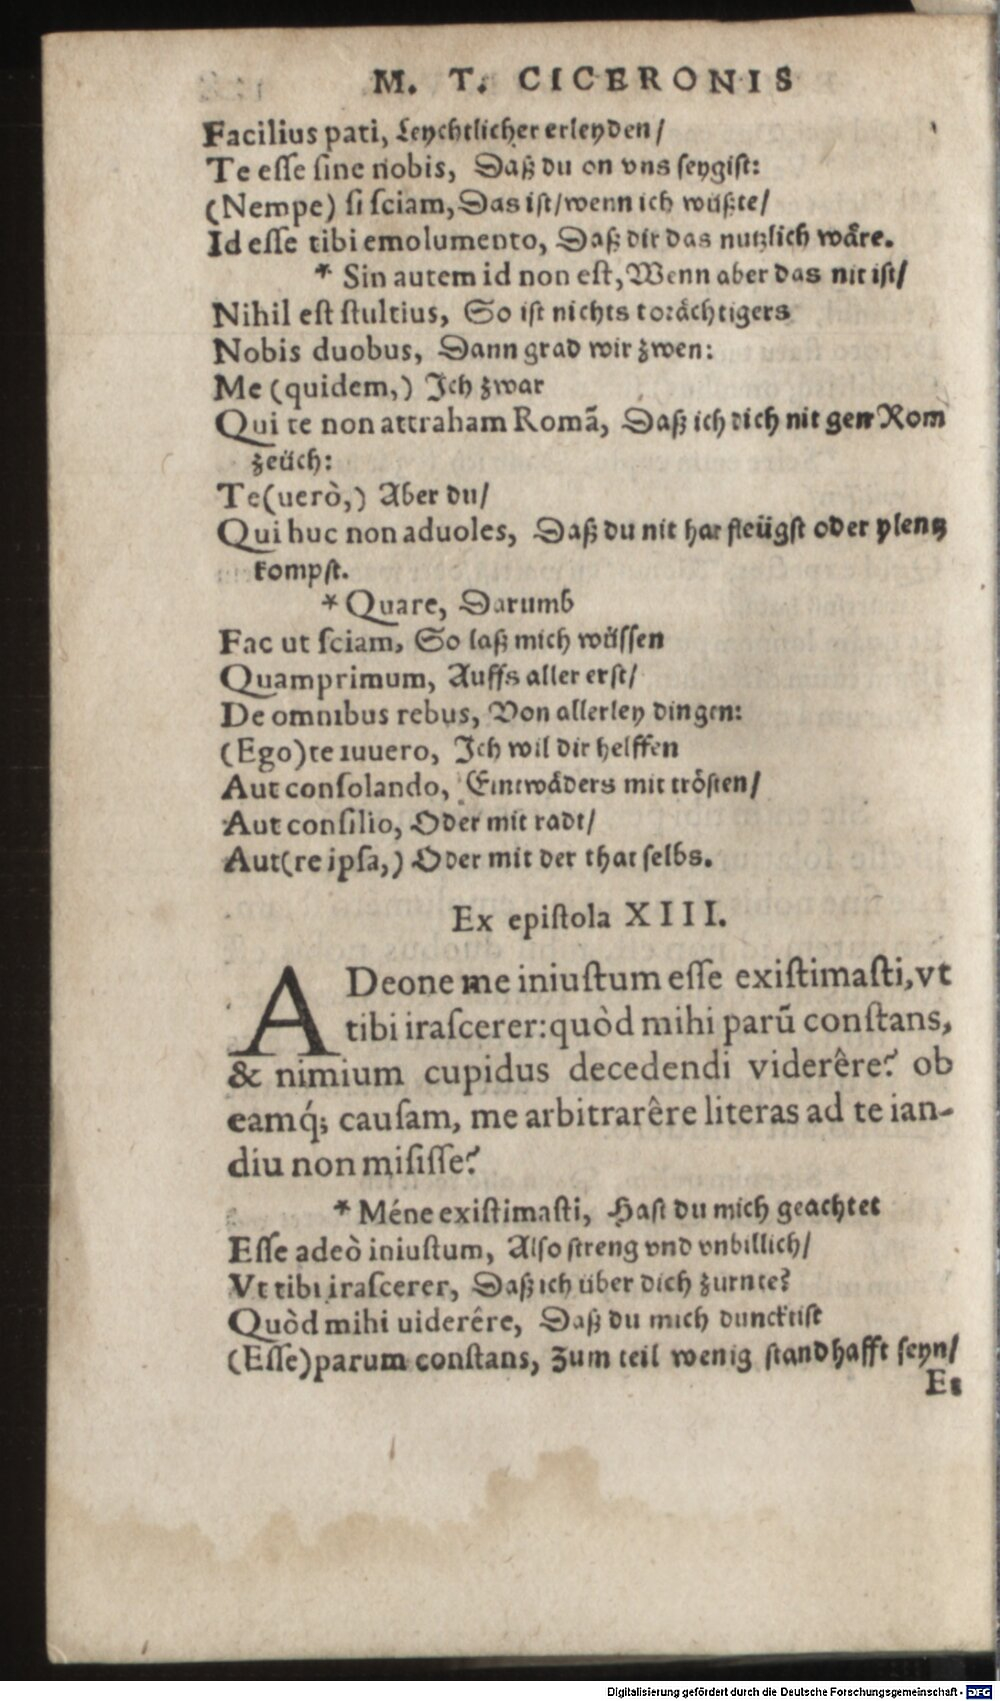 M. T. CICERONIS
Facilius pati, Leychtlicher erleyden/
Te eſſe ſine nobis, Daß du on vns ſeygiſt:
(Nempe) ſi ſciam, Das iſt/wenn ich wüßte/
Id eſſe tibi emolumento, Daß dir das nutzlich wåre.
* Sin autem id non eſt, Wenn aber das nit iſt/
Nihil eſt ſtultius, So iſt nichts torächtigers
Nobis duobus, Dann grad wir zwen:
Me (quidem,) Ich zwar
Qui te non attraham Romã, Daß ich dich nit gen Rom
zeüch:
Te(uerò,) Aber du/
Qui huc non aduoles, Daß du nit har fleügſt oder ylentz
kompſt.
* Quare, Darumb
Fac ut ſciam, So laß mich wüſſen
Quamprimum, Auffs aller erſt/
De omnibus rebus, Von allerley dingen:
(Ego) te iuuero, Ich wil dir helffen
Aut conſolando, Eintwåders mit tröſten/
Aut conſilio, Oder mit radt/
Aut(re ipſa,) Oder mit der that ſelbs.
Ex epiſtola XIII.
ADeone me iniuſtum eſſe exiſtimaſti, vt
tibi iraſcerer: quòd mihi parũ conſtans,
& nimium cupidus decedendi viderêre? ob
eamq́; cauſam, me arbitrarêre literas ad te ian-
diu non miſiſſe?
* Méne exiſtimaſti, Haſt du mich geachtet
Eſſe adeò iniuſtum, Alſo ſtreng vnd vnbillich/
Vt tibi iraſcerer, Daß ich über dich zurnte?
Quòd mihi uiderêre, Daß du mich duncktiſt
(Eſſe) parum conſtans, Zum teil wenig ſtandhafft ſeyn/
Et
Digitalisierung gefördert durch die Deutsche Forschungsgemeinschaft - DFG